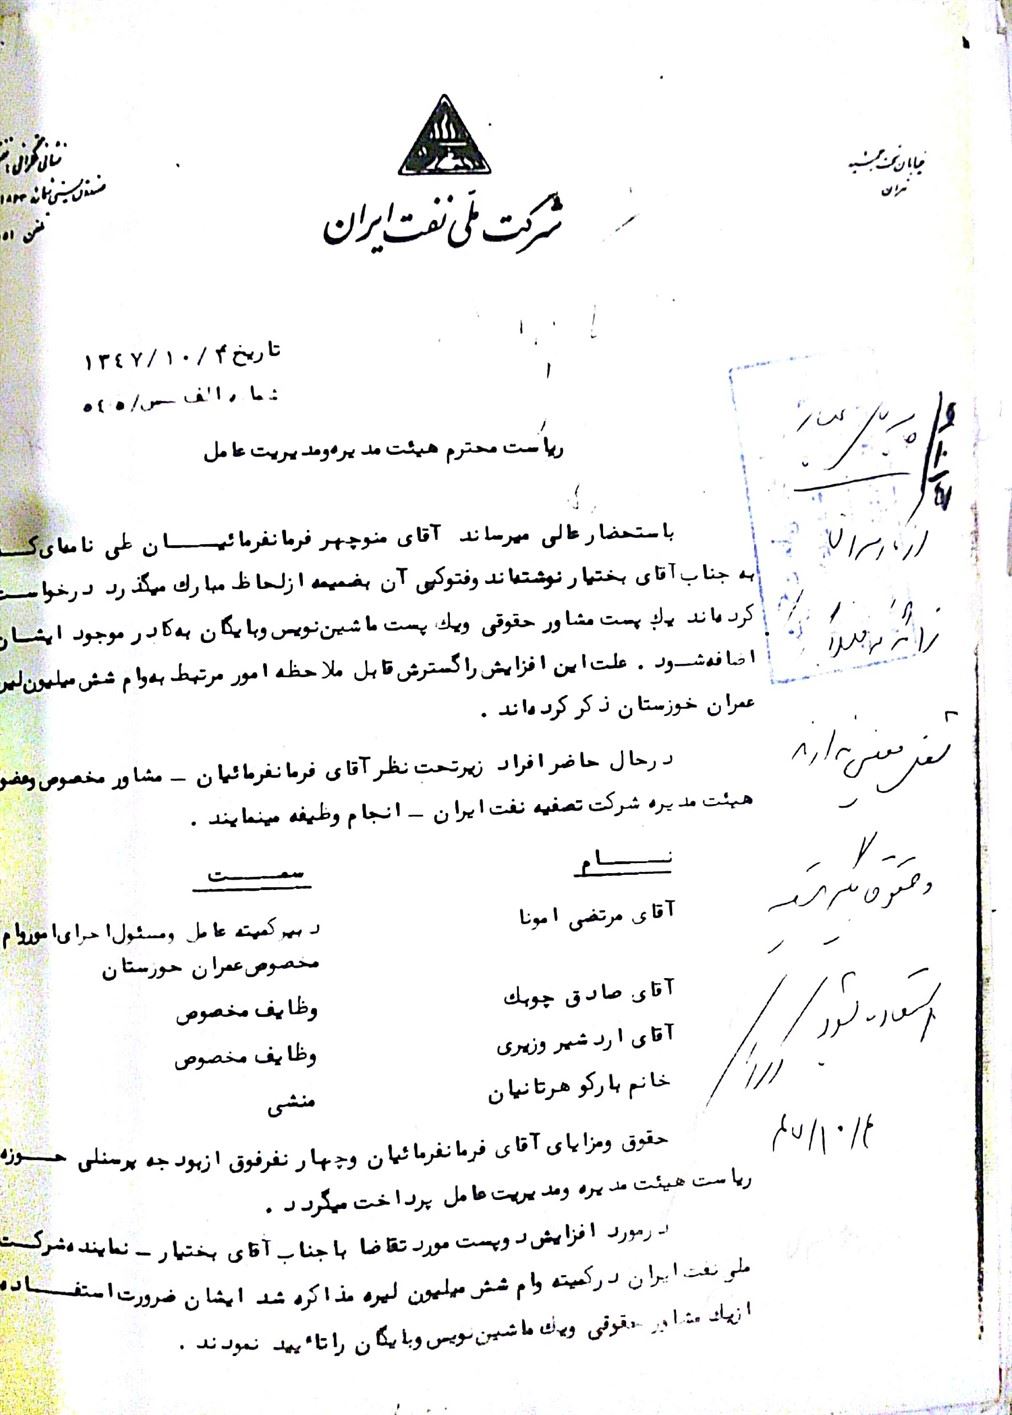 خیابان تخت جمشید
تهران
نشانی تلگرافی:
صندوق پستی شماره ۱۸۶۳
تلفن
شرکت ملّی نفت ایران
تاریخ ۱۳٤۷/۱۰/۴
شماره الف س/٥٤۰٥
ریاست محترم هیئت مدیره ومدیریت عامل
باستحضار عالی میرساند آقای منوچهر فرمانفرمائیـــان طی نامه‌ای کـه
به جناب آقای بختیار نوشته‌اند وفتوکپی آن بضمیمه ازلحاظ مبارك میگذرد درخواست
کرده‌اند یك پست مشاور حقوقی ویك پست ماشین‌نویس وبایگان به‌کادر موجود ایشان
اضافه‌شود . علت این افزایش راگسترش قابل ملاحظه امور مرتبط به‌وام شش میلیون لیره
عمران خوزستان ذکر کرده‌اند .
درحال حاضر افراد زیرتحت نظر آقای فرمانفرمائیان – مشاور مخصوص وعضو
هیئت مدیره شرکت تصفیه نفت ایران – انجام وظیفه مینمایند .
نـــام	سمـــت
آقای مرتضی امونا	دبیرکمیته عامل ومسئول اجرای اموروام
مخصوص عمران خوزستان
آقای صادق چوبك	وظایف مخصوص
آقای اردشیر وزیری	وظایف مخصوص
خانم بارکو هرتانیان	منشی
حقوق ومزایای آقای فرمانفرمائیان وچهار نفرفوق ازبودجه پرسنلی حـوزه
ریاست هیئت مدیره ومدیریت عامل پرداخت میگردد .
درمورد افزایش دوپست مورد تقاضا باجناب آقای بختیار – نماینده شرکت
ملی نفت ایران درکمیته وام شش میلیون لیره مذاکره شد ایشان ضرورت استفـــاده
ازیك مشاور حقوقی ویك ماشین‌نویس وبایگان راتائید نمودند .
۴۷/۱۰/۴